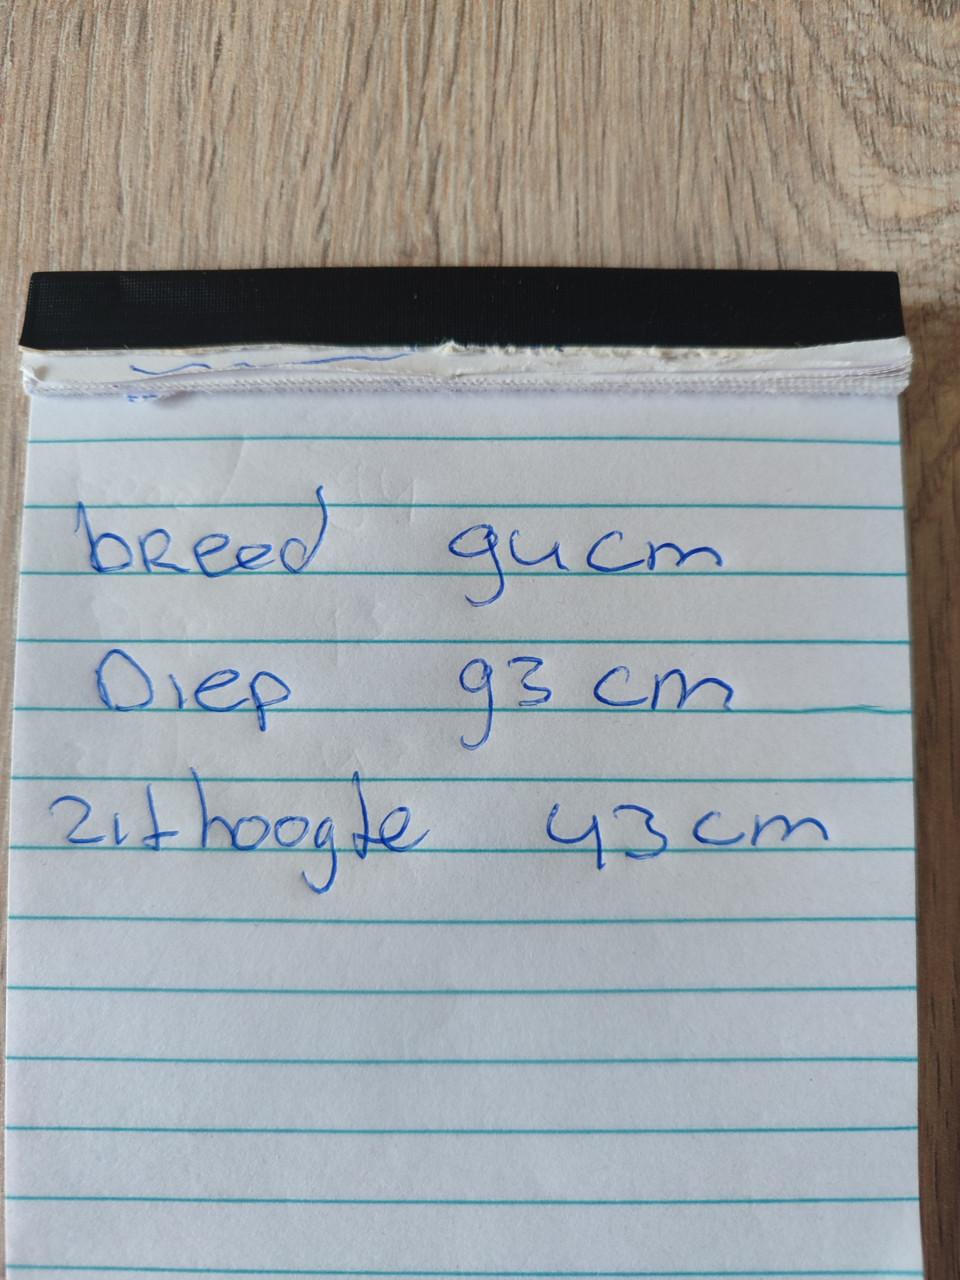 breed 94cm
Diep 93 cm
zithoogte 43cm